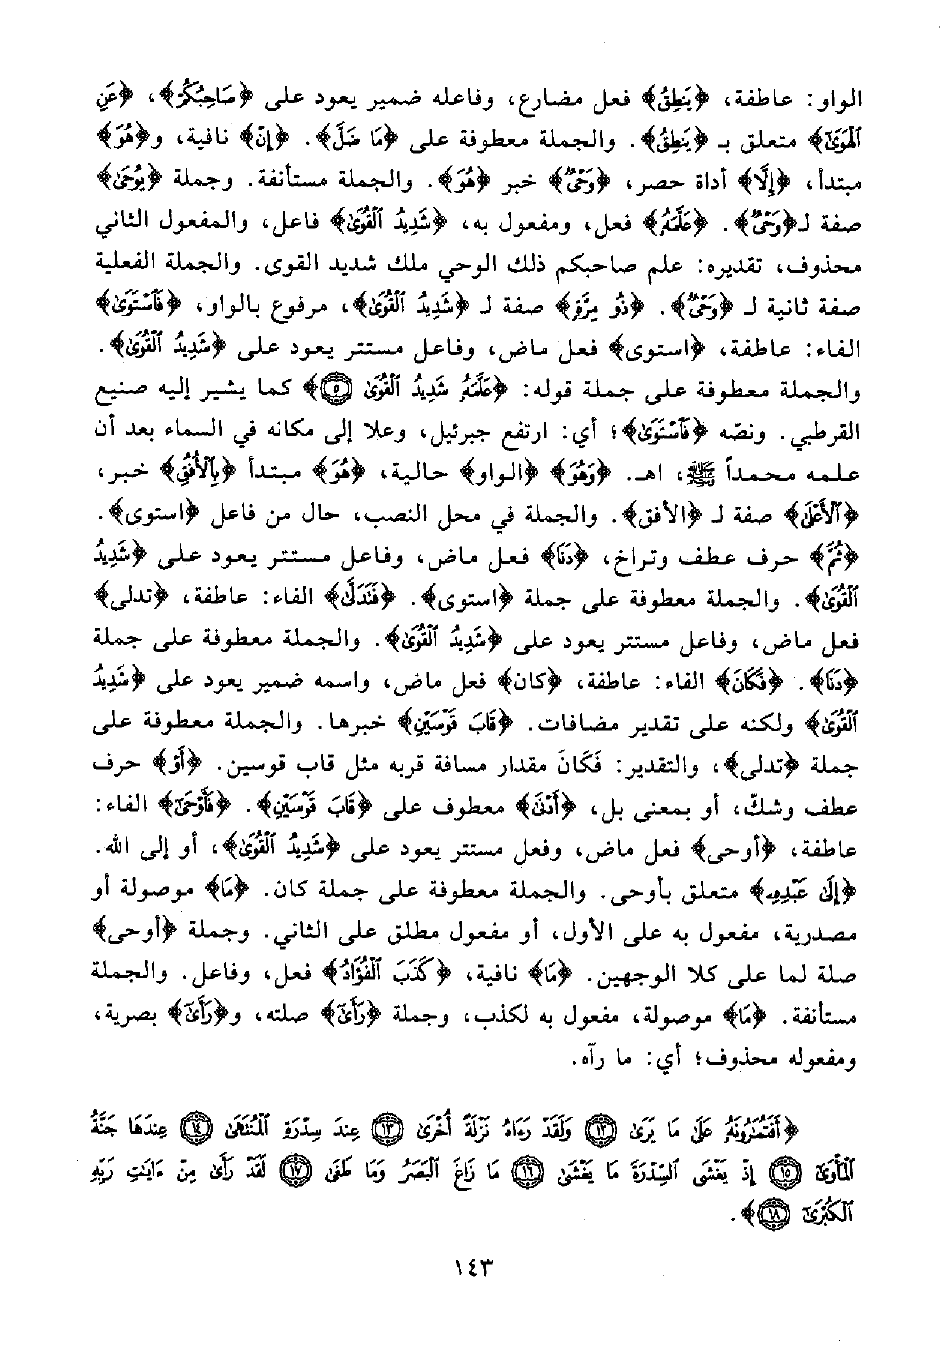 الواو: عاطفة، ﴿يَنْطِقُ﴾ فعل مضارع، وفاعله ضمير يعود على ﴿صَاحِبُكُمْ﴾، ﴿عَنِ
الْهَوَىٰ﴾ متعلق بـ ﴿يَنْطِقُ﴾. والجملة معطوفة على ﴿مَا ضَلَّ﴾. ﴿إِنْ﴾ نافية، و﴿هُوَ﴾
مبتدأ، ﴿إِلَّا﴾ أداة حصر، ﴿وَحْيٌ﴾ خبر ﴿هُوَ﴾. والجملة مستأنفة. وجملة ﴿يُوحَىٰ﴾
صفة لـ﴿وَحْيٌ﴾. ﴿عَلَّمَهُ﴾ فعل، ومفعول به، ﴿شَدِيدُ الْقُوَىٰ﴾ فاعل، والمفعول الثاني
محذوف، تقديره: علم صاحبكم ذلك الوحي ملك شديد القوى. والجملة الفعلية
صفة ثانية لـ ﴿وَحْيٌ﴾. ﴿ذُو مِرَّةٍ﴾ صفة لـ ﴿شَدِيدُ الْقُوَىٰ﴾، مرفوع بالواو، ﴿فَاسْتَوَىٰ﴾
الفاء: عاطفة، ﴿استوى﴾ فعل ماض، وفاعل مستتر يعود على ﴿شَدِيدُ الْقُوَىٰ﴾.
والجملة معطوفة على جملة قوله: ﴿عَلَّمَهُ شَدِيدُ الْقُوَىٰ ٥﴾ كما يشير إليه صنيع
القرطبي. ونصّه ﴿فَاسْتَوَىٰ﴾؛ أي: ارتفع جبرئيل، وعلا إلى مكانه في السماء بعد أن
علمه محمداً ﷺ، اهـ. ﴿وَهُوَ﴾ ﴿الواو﴾ حالية، ﴿هُوَ﴾ مبتدأ ﴿بِالْأُفُقِ﴾ خبر،
﴿الْأَعْلَىٰ﴾ صفة لـ ﴿الأفق﴾. والجملة في محل النصب، حال من فاعل ﴿استوى﴾.
﴿ثُمَّ﴾ حرف عطف وتراخ، ﴿دَنَا﴾ فعل ماض، وفاعل مستتر يعود على ﴿شَدِيدُ
الْقُوَىٰ﴾. والجملة معطوفة على جملة ﴿استوى﴾. ﴿فَتَدَلَّىٰ﴾ الفاء: عاطفة، ﴿تدلى﴾
فعل ماض، وفاعل مستتر يعود على ﴿شَدِيدُ الْقُوَىٰ﴾. والجملة معطوفة على جملة
﴿دَنَا﴾. ﴿فَكَانَ﴾ الفاء: عاطفة، ﴿كان﴾ فعل ماض، واسمه ضمير يعود على ﴿شَدِيدُ
الْقُوَىٰ﴾ ولكنه على تقدير مضافات. ﴿قَابَ قَوْسَيْنِ﴾ خبرها. والجملة معطوفة على
جملة ﴿تدلى﴾، والتقدير: فَكَانَ مقدار مسافة قربه مثل قاب قوسين. ﴿أَوْ﴾ حرف
عطف وشك، أو بمعنى بل، ﴿أَدْنَىٰ﴾ معطوف على ﴿قَابَ قَوْسَيْنِ﴾. ﴿فَأَوْحَىٰ﴾ الفاء:
عاطفة، ﴿أوحى﴾ فعل ماض، وفعل مستتر يعود على ﴿شَدِيدُ الْقُوَىٰ﴾، أو إلى الله.
﴿إِلَىٰ عَبْدِهِ﴾ متعلق بأوحى. والجملة معطوفة على جملة كان. ﴿مَا﴾ موصولة أو
مصدرية، مفعول به على الأول، أو مفعول مطلق على الثاني. وجملة ﴿أوحى﴾
صلة لما على كلا الوجهين. ﴿مَا﴾ نافية، ﴿كَذَبَ الْفُؤَادُ﴾ فعل، وفاعل. والجملة
مستأنفة. ﴿مَا﴾ موصولة، مفعول به لكذب، وجملة ﴿رَأَىٰ﴾ صلته، و﴿رَأَىٰ﴾ بصرية،
ومفعوله محذوف؛ أي: ما رآه.
﴿أَفَتُمَارُونَهُ عَلَىٰ مَا يَرَىٰ ١٢ وَلَقَدْ رَءَاهُ نَزْلَةً أُخْرَىٰ ١٣ عِندَ سِدْرَةِ الْمُنتَهَىٰ ١٤ عِندَهَا جَنَّةُ
الْمَأْوَىٰ ١٥ إِذْ يَغْشَى السِّدْرَةَ مَا يَغْشَىٰ ١٦ مَا زَاغَ الْبَصَرُ وَمَا طَغَىٰ ١٧ لَقَدْ رَأَىٰ مِنْ ءَايَاتِ رَبِّهِ
الْكُبْرَىٰ ١٨﴾.
١٤٣